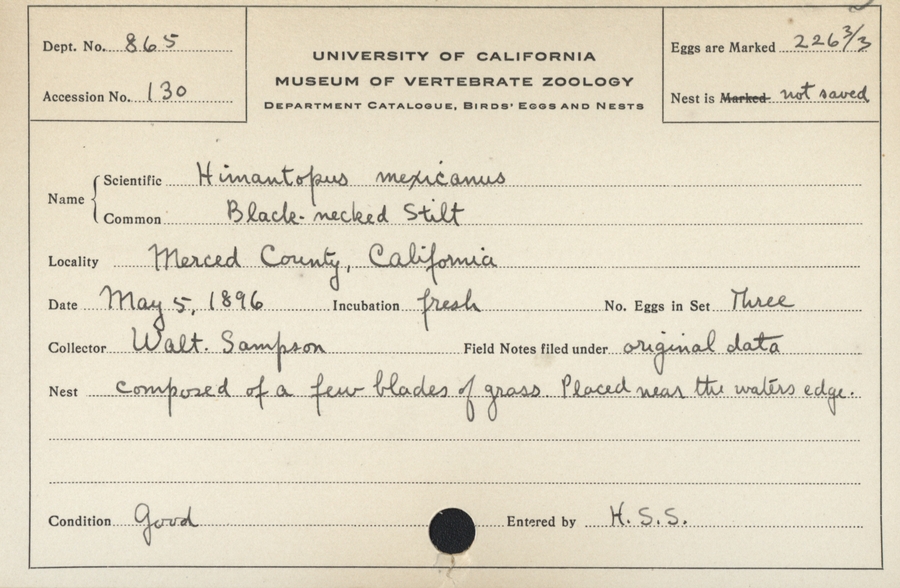 Dept. No. 865
Accession No. 130
UNIVERSITY OF CALIFORNIA
MUSEUM OF VERTEBRATE ZOOLOGY
DEPARTMENT CATALOGUE, BIRDS' EGGS AND NESTS
Eggs are Marked 226 3/3
Nest is Marked not saved
Name
Scientific Himantopus mexicanus
Common Black-necked Stilt
Locality Merced County, California
Date May 5, 1896 Incubation fresh No. Eggs in Set Three
Collector Walt. Sampson Field Notes filed under original data
Nest composed of a few blades of grass. Placed near the waters edge.
Condition Good Entered by H.S.S.